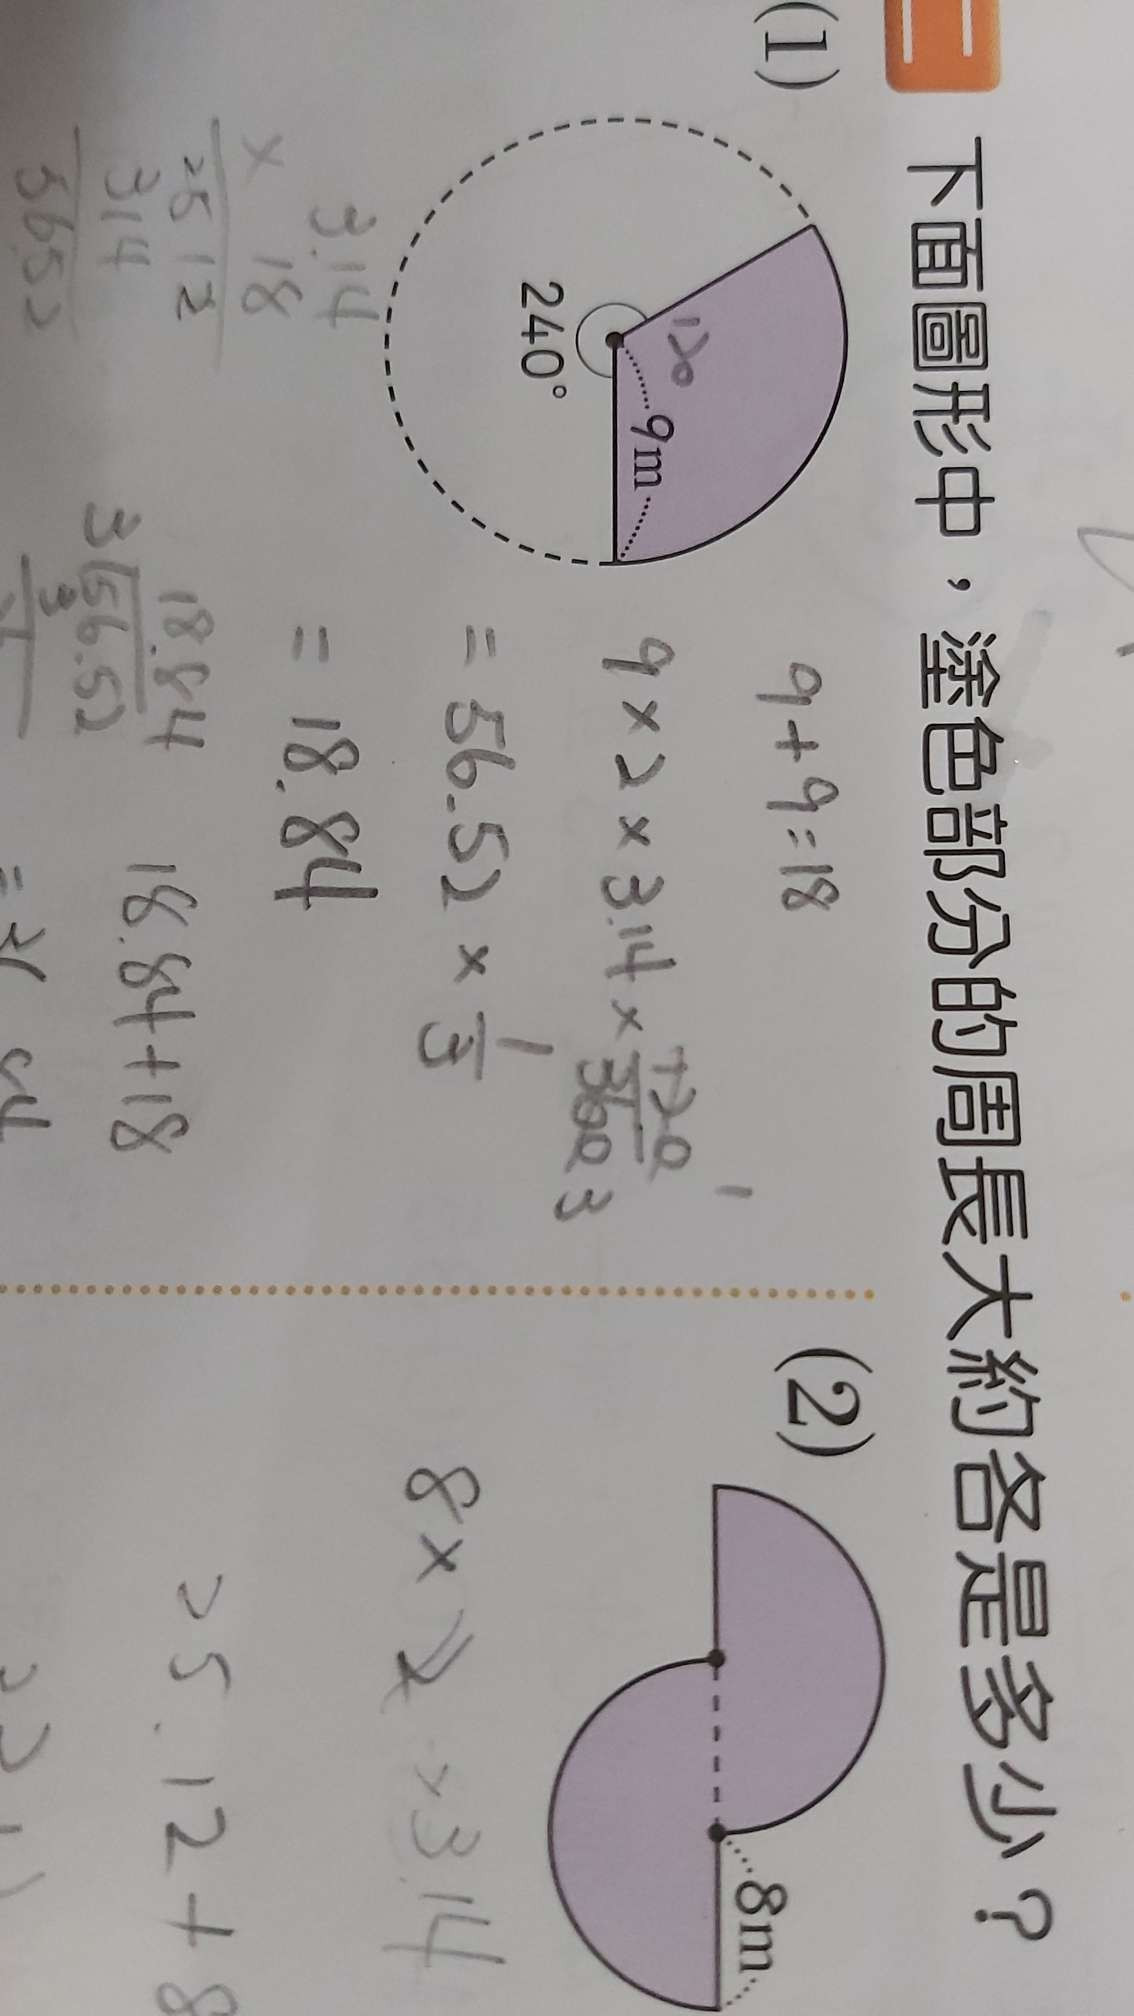 二
下面圖形中，塗色部分的周長大約各是多少？
(1)
240°
120
9m
9+9=18
9×2×3.14×120/360
1
3
=56.52×1/3
=18.84
3.14
× 18
2512
314
5652
18.84
3)56.52
3
18.84+18
(2)
8m
8×2×3.14
25.12+8